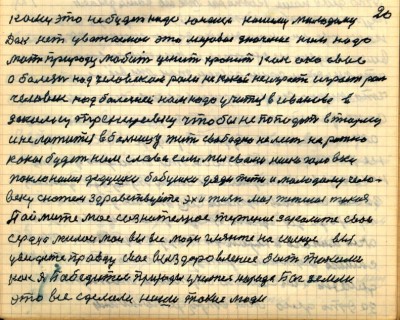 20
кому это не будет надо юноши какому молодому
Вам нет уважаемой это мировая значение нам надо
мать природу любить ценить хранить как око свое
а болезь над человеком роли не какой не играет играет рол
человек над болезней нам надо учится в Иванове в
закалку тренировку чтобы не попадать в тюрму
и не ложится в больницу жить свободно не лезть на рожно
какая будет нам слава если мы своей низко головку
поклонимся дедушки бабушки дяди тети и молодому чело-
веку скажем здравствуйте эх и жизь моя тяжелая такая
Поймите мое сознательное терпение закалите свои
сердца милои мои вы все люди гляньте на солнце вы
увидете правду свое выздоровление быть таким
как я Победителем природы учителя народа Бог земли
это все сделали наши такие люди